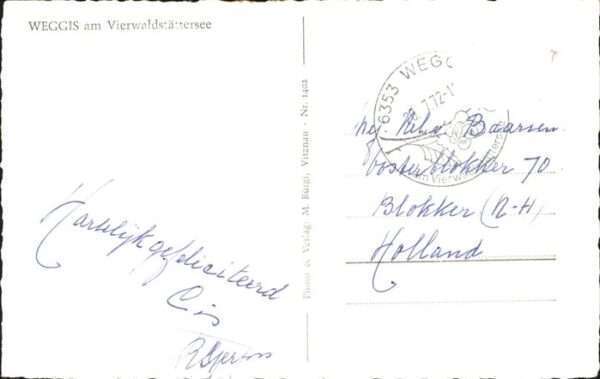 WEGGIS am Vierwaldstättersee
Hartelijk gefeliciteerd
Cis
Photo & Verlag: M. Bürgi, Vitznau - Nr. 1402
6353 WEGG
7.72-1
am Vierwaldstätterse
Mej. Baarsen
Oosterblokker 70
Blokker (N-H)
Holland